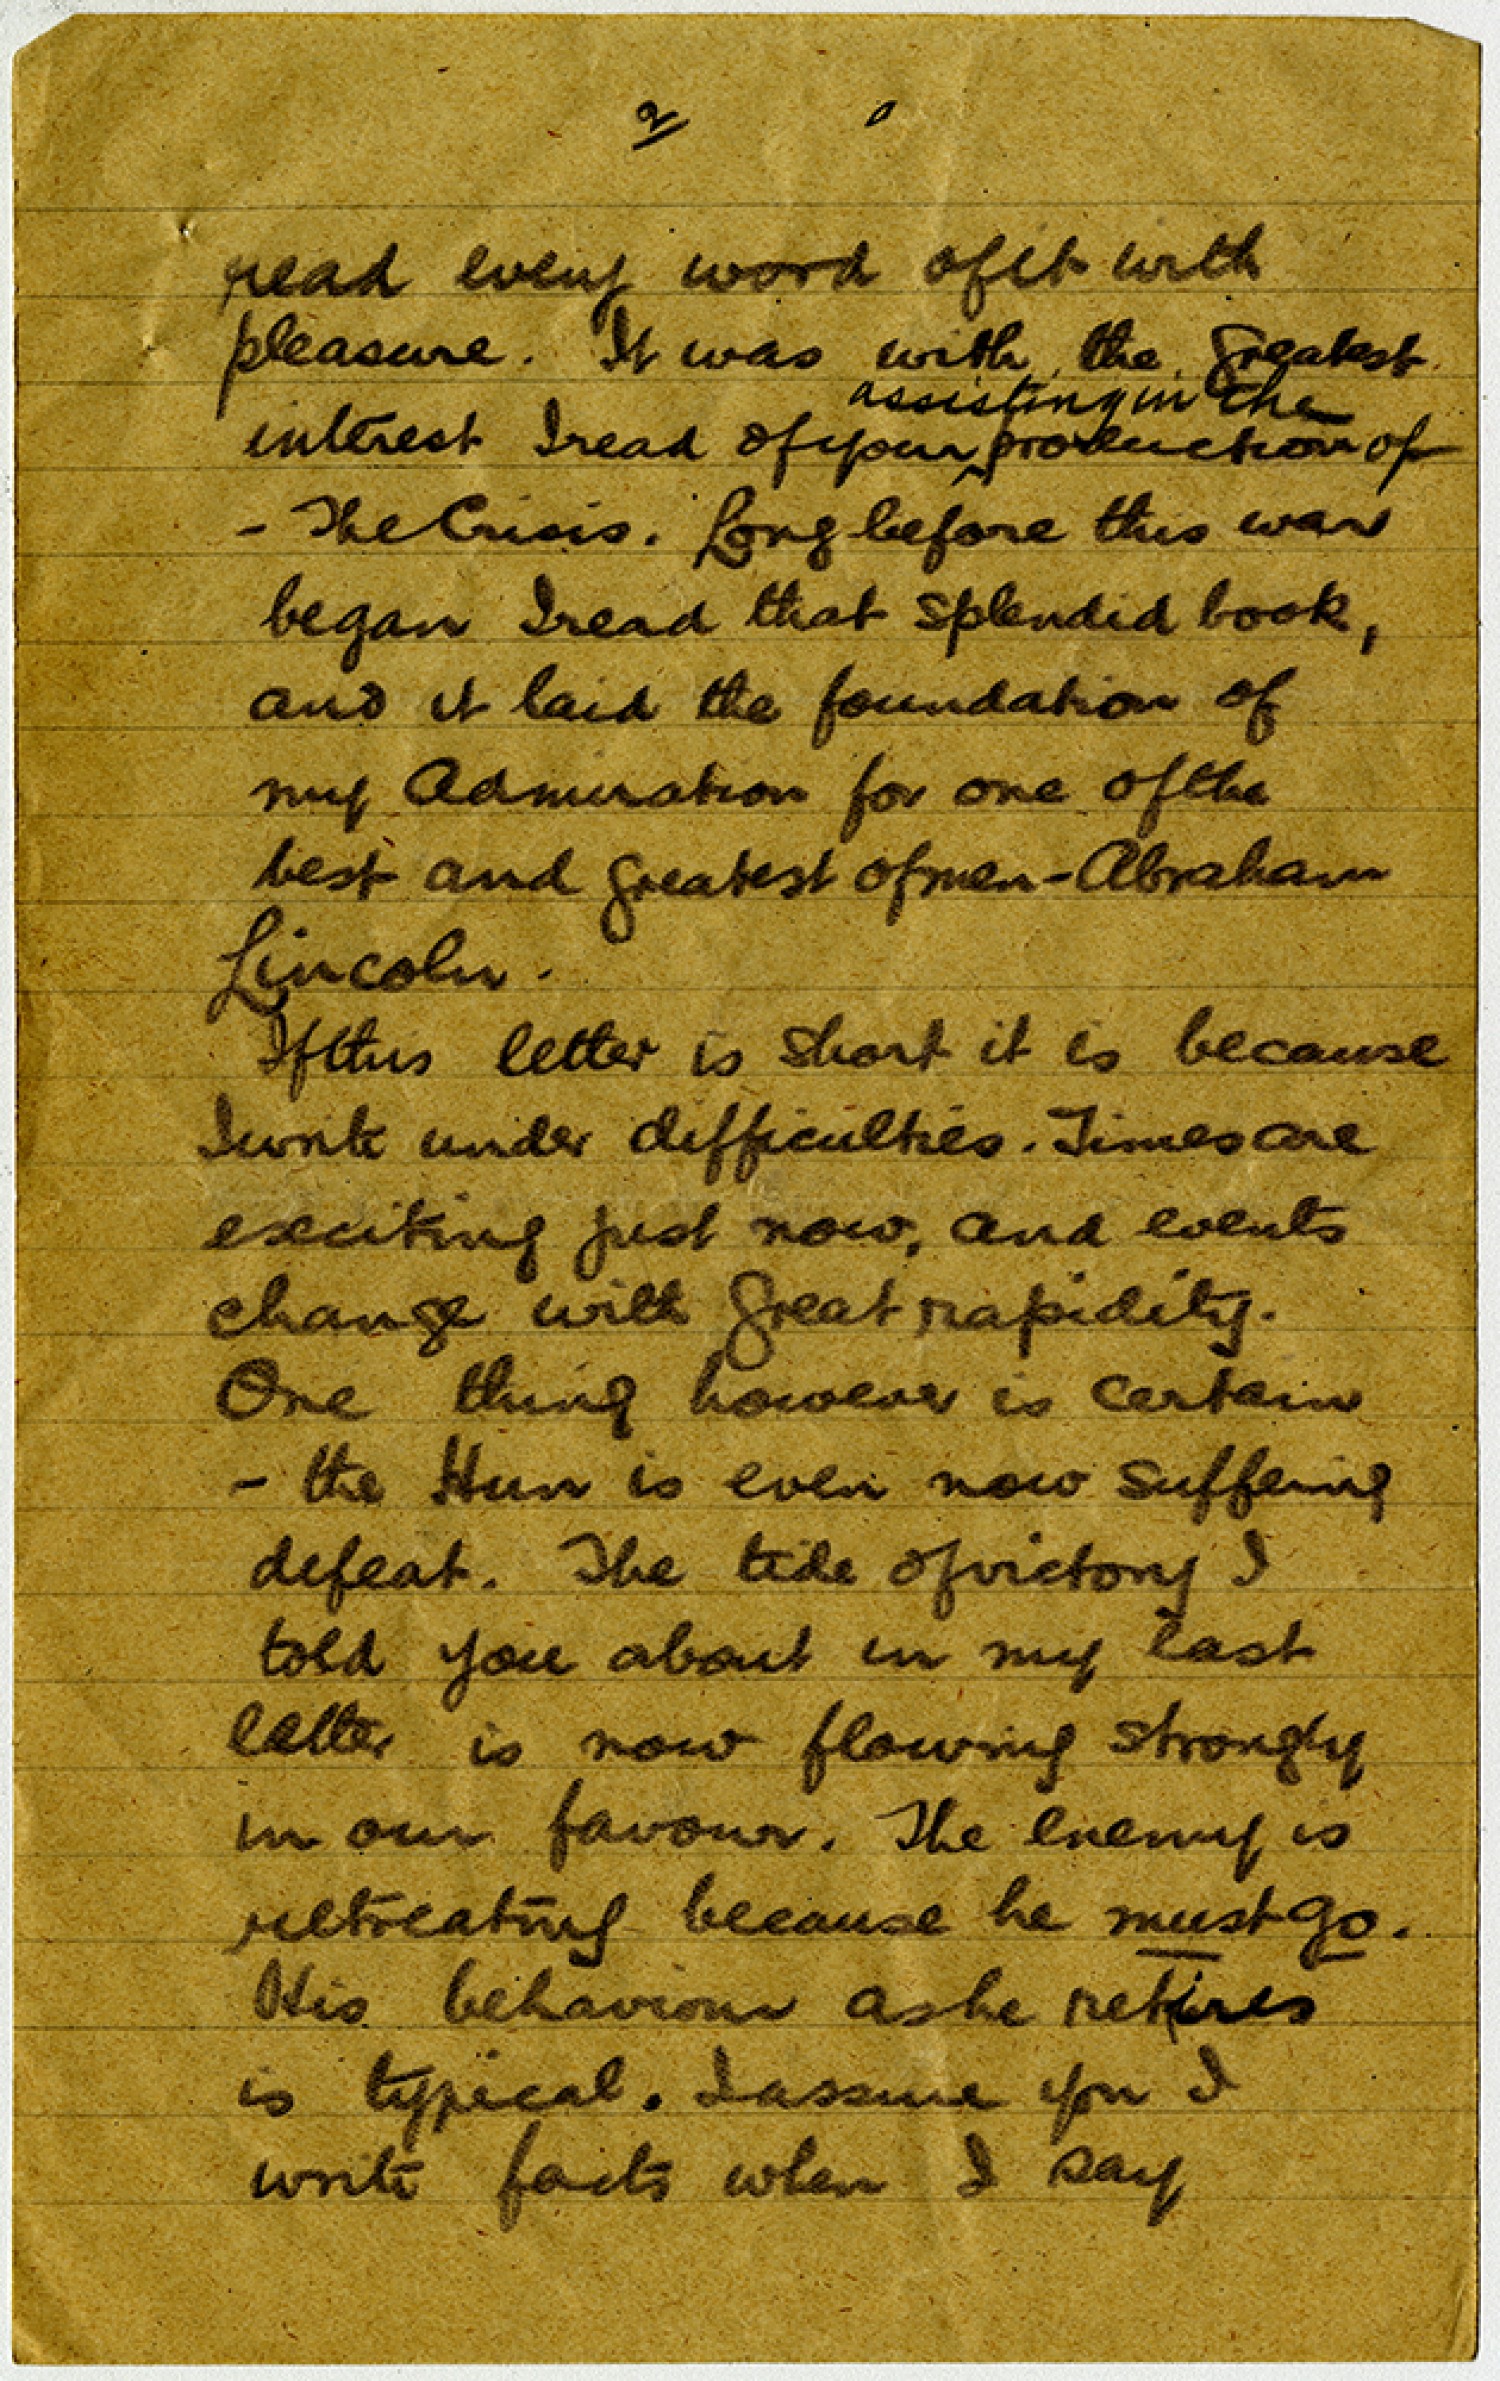 2
read every word of it with
pleasure. It was with the greatest
assisting in the
interest I read of your ^ production of
- The Crisis. Long before this war
began I read that splendid book,
and it laid the foundation of
my Admiration for one of the
best and greatest of men - Abraham
Lincoln.
If this letter is short it is because
I write under difficulties. Times are
exciting just now, and events
change with great rapidity.
One thing however is certain
- the Hun is even now suffering
defeat. The tide of victory I
told you about in my last
letter is now flowing strongly
in our favour. The enemy is
retreating because he must go.
His behaviour as he retires
is typical. I assure you I
write facts when I say